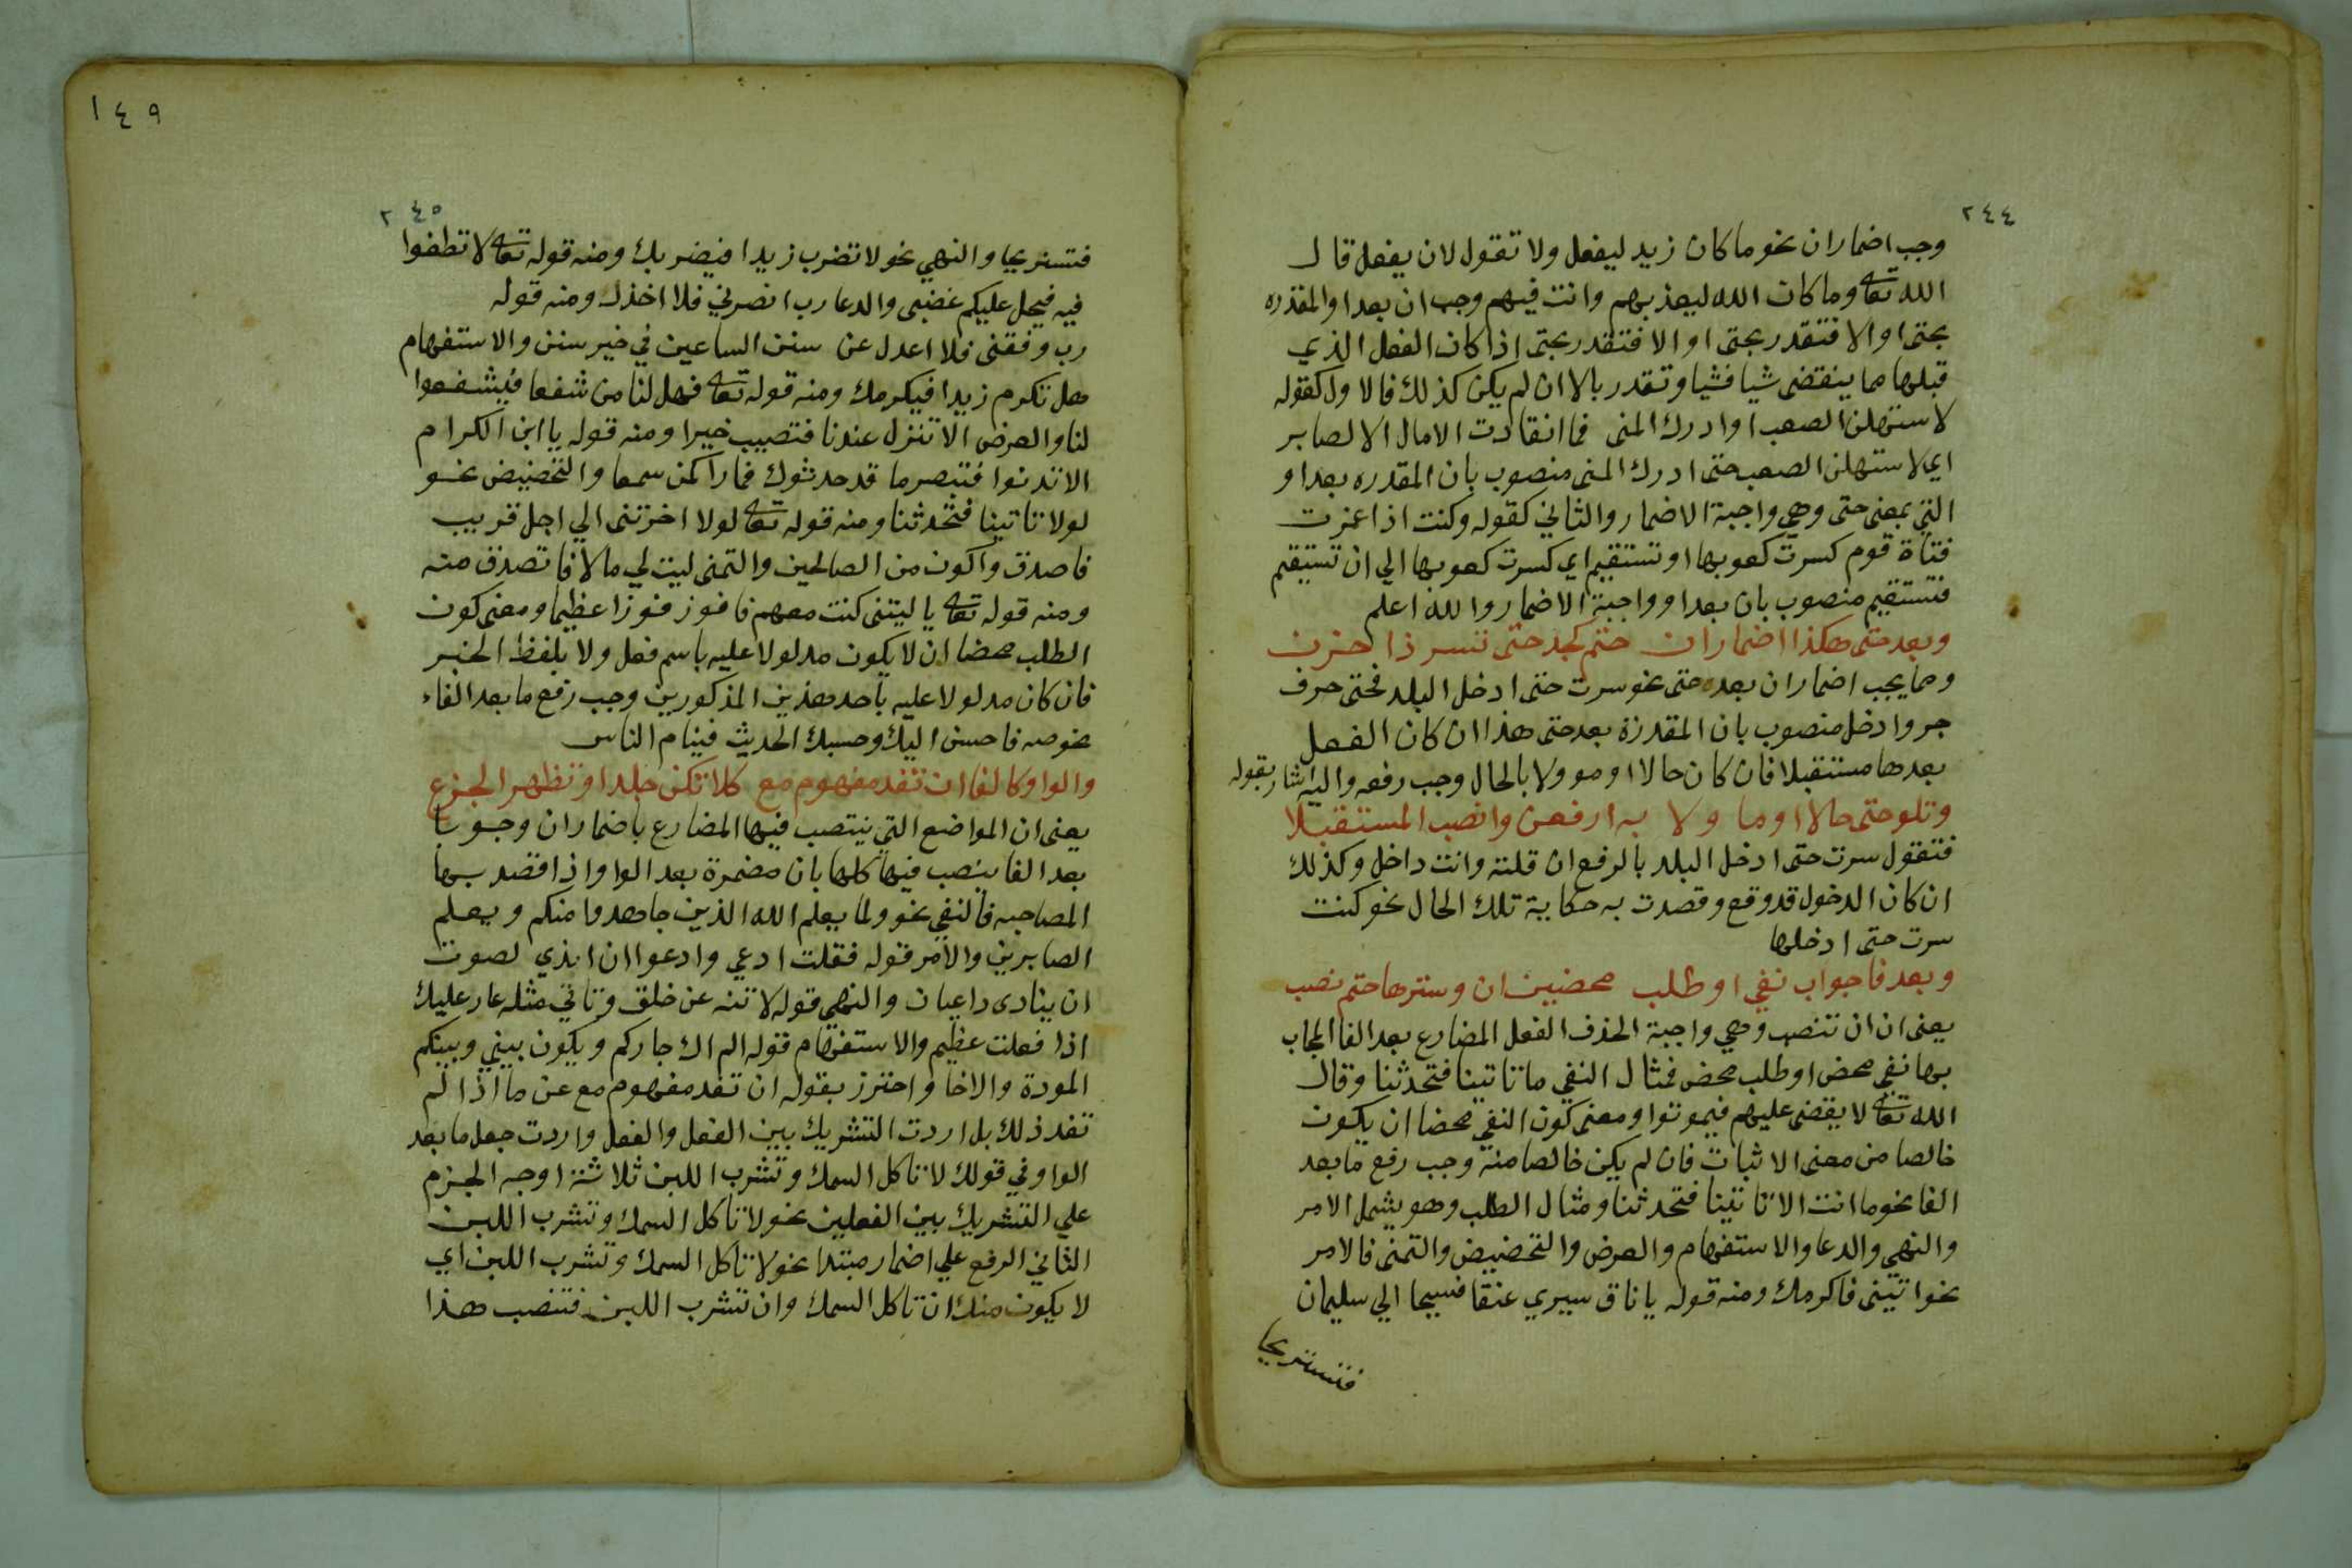 ٢٤٤
وجب اضماران نحو ما كان زيد ليفعل ولا تقول لان يفعل قال
الله تعا وما كان الله ليعذبهم وانت فيهم وجب ان بعد او المقدره
بحتى او الا فتقدر بحتى او الا فتقدر بحتى اذا كان الفعل الذي
قبلها مما ينقضى شيا فشيا وتقدر بالا ان لم يكن كذلك فالاول كقوله
لاستهلن الصعب او ادرك المنى فما انقادت الامال الا لصابر
اي لاستهلن الصعب حتى ادرك المنى منصوب بان المقدره بعد او
التي بمعنى حتى وهي واجبة الاضمار والثاني كقوله وكنت اذا غمزت
قناة قوم كسرت كعوبها او تستقيم اي كسرت كعوبها الي ان تستقيم
فتستقيم منصوب بان بعد او واجبة الاضمار والله اعلم
وبعد حتى هكذا اضماران حتم كجد حتى تسر ذا حزن
ومما يجب اضماران بعده حتى نحو سرت حتى ادخل البلد فحتى حرف
جر وادخل منصوب بان المقدرة بعد حتى هذا ان كان الفعل
بعدها مستقبلا فان كان حالا او موولا بالحال وجب رفعه واليه اشار بقوله
وتلو حتى حالا او ما ولا به ارفعن وانصب المستقبلا
فتقول سرت حتى ادخل البلد بالرفع ان قلته وانت داخل وكذلك
ان كان الدخول قد وقع وقصدت به حكاية تلك الحال نحو كنت
سرت حتى ادخلها
وبعد فا جواب نفي او طلب محضين ان وسترها حتم نصب
يعنى ان ان تنصب وهي واجبة الحذف الفعل المضارع بعد الفا المجاب
بها نفي محض او طلب محض فمثال النفي ما تاتينا فتحدثنا وقال
الله تعا لا يقضى عليهم فيموتوا ومعنى كون النفي محضا ان يكون
خالصا من معنى الاثبات فان لم يكن خالصا منه وجب رفع ما بعد
الفا نحو ما انت الا تاتينا فتحدثنا ومثال الطلب وهو يشمل الامر
والنهي والدعا والاستفهام والعرض والتحضيض والتمنى فالامر
نحو اتيتنى فاكرمك ومنه قوله يا ناق سيري عنقا فسيحا الي سليمان
فتستريحا
١٤٩
٢٤٥
فتستريحا والنهي نحو لا تضرب زيدا فيضربك ومنه قوله تعا لا تطغوا
فيه فيحل عليكم غضبى والدعا رب انصرني فلا اخذل ومنه قوله
رب وفقنى فلا اعدل عن سنن الساعين في خير سنن والاستفهام
هل تكرم زيدا فيكرمك ومنه قوله تعا فهل لنا من شفعا فيشفعوا
لنا والعرض الا تنزل عندنا فتصيب خيرا ومنه قوله يا ابن الكرام
الا تدنوا فتبصر ما قد حدثوك فما راكمن سمعا والتحضيض نحو
لولا تاتينا فتحدثنا ومنه قوله تعا لولا اخرتنى الي اجل قريب
فاصدق واكون من الصالحين والتمنى ليت لي مالا فاتصدق منه
ومنه قوله تعا يا ليتنى كنت معهم فافوز فوزا عظيما ومعنى كون
الطلب محضا ان لا يكون مدلولا عليه باسم فعل ولا بلفظ الخبر
فان كان مدلولا عليه باحد هذين المذكورين وجب رفع ما بعد الفاء
نحو صه فاحسن اليك وحسبك الحديث فينام الناس
والواو كالفا ان تفد مفهوم مع كلا تكن جلدا وتظهر الجزع
يعنى ان المواضع التي ينتصب فيها المضارع باضماران وجوبا
بعد الفا ينصب فيها كلها بان مضمرة بعد الواو اذا قصد بها
المصاحبه فالنفي نحو ولما يعلم الله الذين جاهدوا منكم ويعلم
الصابرين والامر قوله فقلت ادعي وادعوا ان اندي لصوت
ان ينادى داعيان والنهى قوله لا تنه عن خلق وتاتي مثله عار عليك
اذا فعلت عظيم والاستفهام قوله الم اك جاركم ويكون بيني وبينكم
المودة والاخا واحترز بقوله ان تفد مفهوم مع عن ما اذا لم
تفد ذلك بل اردت التشريك بين الفعل والفعل واردت جعل ما بعد
الواو في قولك لا تاكل السمك وتشرب اللبن ثلاثة اوجه الجزم
علي التشريك بين الفعلين نحو لا تاكل السمك وتشرب اللبن
الثاني الرفع علي اضمار مبتدا نحو لا تاكل السمك وتشرب اللبن اي
لا يكون منك ان تاكل السمك وان تشرب اللبن فتنصب هذا